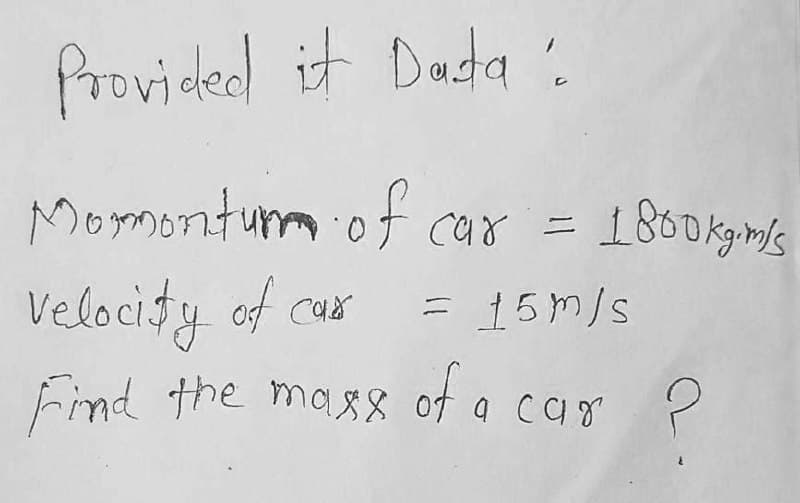 Provided it Data :
Momontum of car = 1800kg.m/s
Velocity of car = 15m/s
Find the mass of a car ?